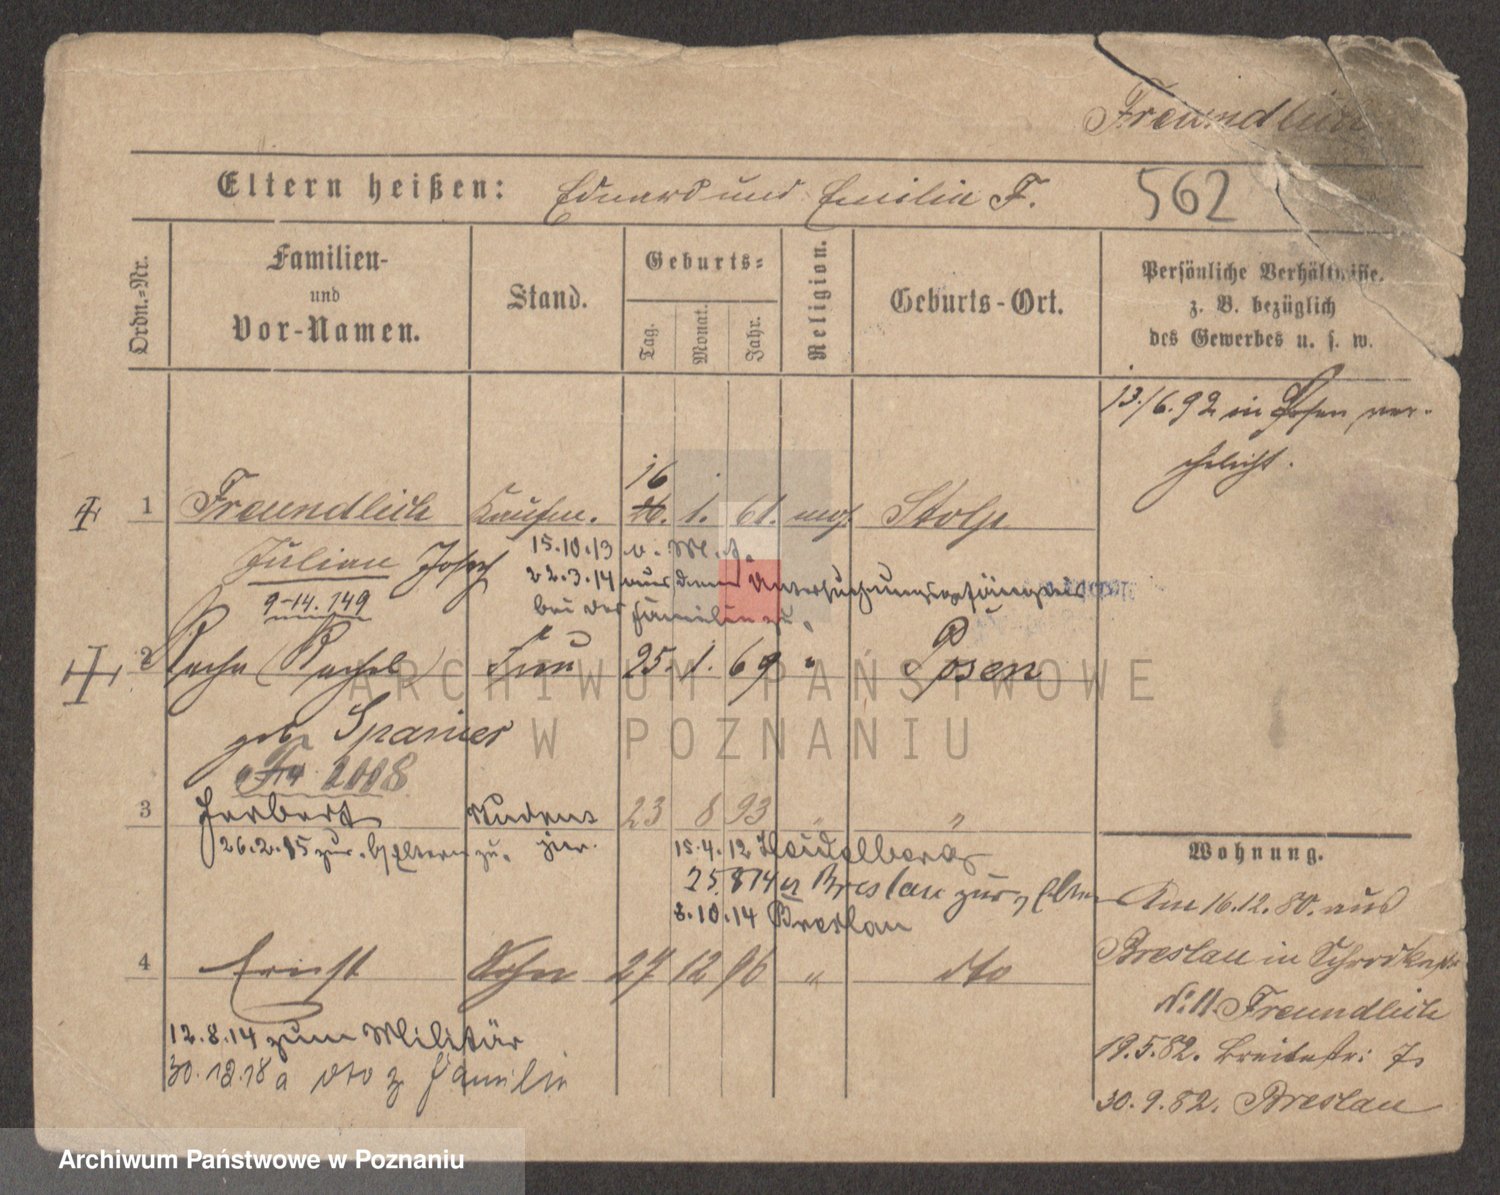 Freundlich
Eltern heißen: Eduard und Emilie F. 562
Ordn.-Nr.
Familien- und Vor-Namen.
Stand.
Geburts-
Tag. Monat. Jahr.
Religion.
Geburts-Ort.
Persönliche Verhältnisse.
z. B. bezüglich
des Gewerbes u. s. w.
13./6.92 in Posen ver-
ehelicht.
16
1 Freundlich Kaufm. 1. 61. mos. Stolp
Julian Josef 15.10.13 v. M.
22.3.14 aus dem Untersuchungsgefängnis
9-14.149
bei der Familie zu.
2 (Rachel) Frau 25. 1. 69 " Posen
geb. Spanier
2008
3 Herbert Student 23 8 93 " "
26.2.15 zur. b/Eltern zu. 15.4.12 Heidelberg
25 8 14 Breslau zur Eltern
8.10.14 Breslau
4 Ernst Sohn 27 12 96 " dto
12.8.14 zum Militär
30.12.18 a dto z Familie
Wohnung.
Am 16.12.80. aus
Breslau in
No: 11. Freundlich
19.5.82. Breitestr: 7
30.9.82. Breslau
ARCHIWUM PAŃSTWOWE
W POZNANIU
Archiwum Państwowe w Poznaniu